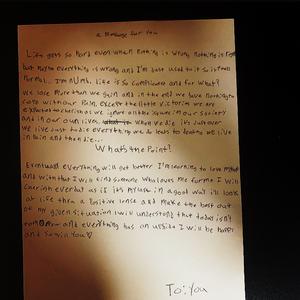 a Message for You
Life gets so hard even when nothing is wrong nothing is right
but maybe everything is wrong and I'm just used to it so it feels
normal.. I'm numb. Life is so complicated and for what?
we lose more than we gain and in the end we have nothing to
cope with our pain. except the little victories we are
expected to cherish as we ignore all the squares in our society
and in our own lives. when we die it's just over
we live just to die everything we do leads to death. we live
in pain and then die...
What's the Point?
Eventually everything will get better I'm learning to love myself
and with that I will find someone who loves me for me I will
cherish everyday as if it's my last in a good way i'll look
at life thru a Positive lense and make the best out
of my given situation I will understand that today isn't
and everything has an upside I will be happy
and so will You
To: You